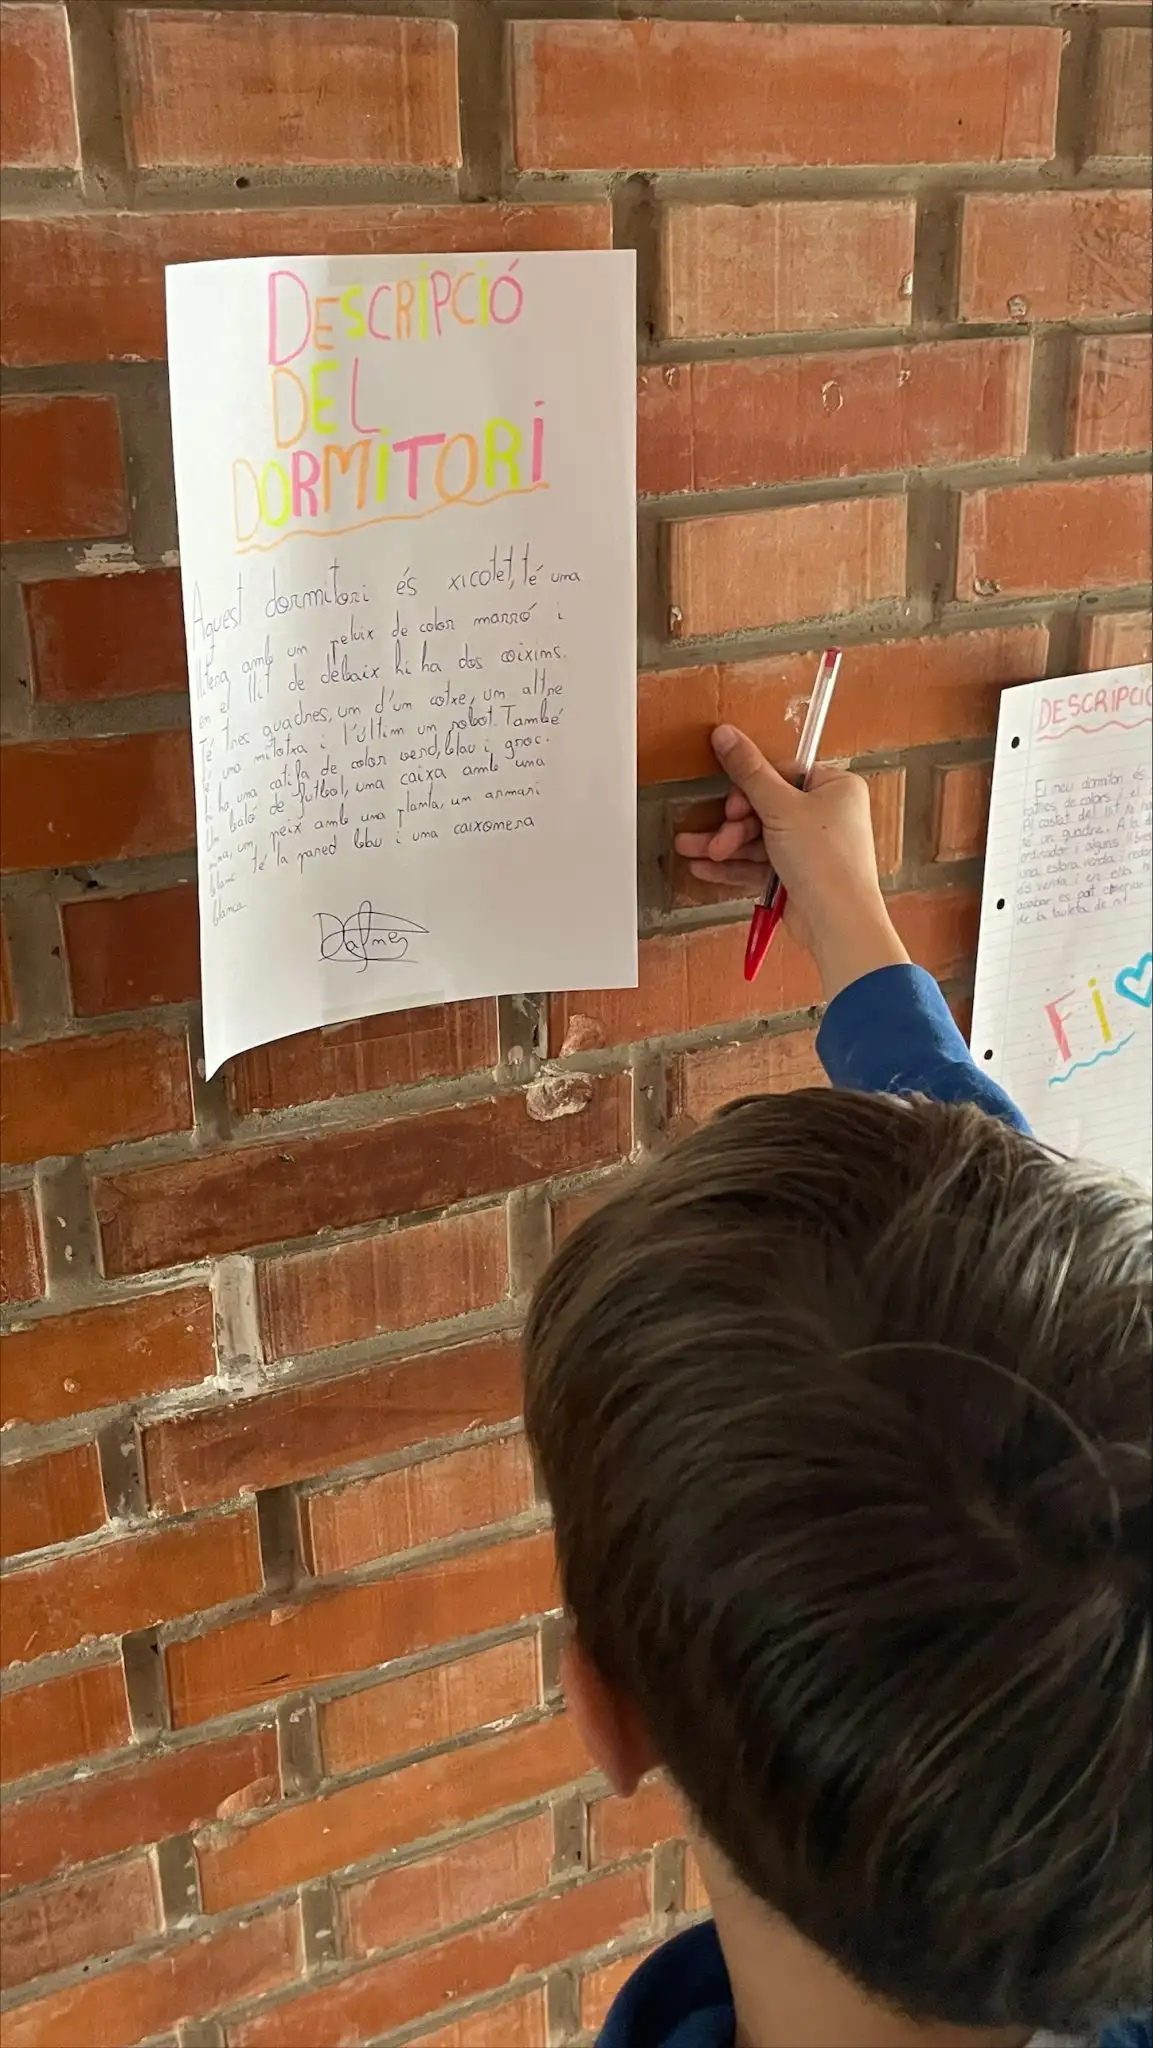 DESCRIPCIÓ
DEL
DORMITORI
Aquest dormitori és xicotet, té una
llitera amb un peluix de color marró i
en el llit de debaix hi ha dos coixins.
Té tres quadres, un d'un cotxe, un altre
d'una mitotxa i l'últim un robot. També
hi ha una catifa de color verd, blau i groc.
Un baló de futbol, una caixa amb una
nina, un peix amb una planta, un armari
blanc té la pared blau i una caixonera
blanca
Dafnes
DESCRIPCIÓ
El meu dormitori és
ratlles de colors i el
Al costat del llit hi ha
té un quadre. A la
ordinador i alguns llibre
una estora verda i redon
és verda i en ella
acabar es pot
de la tauleta de nit
Fi